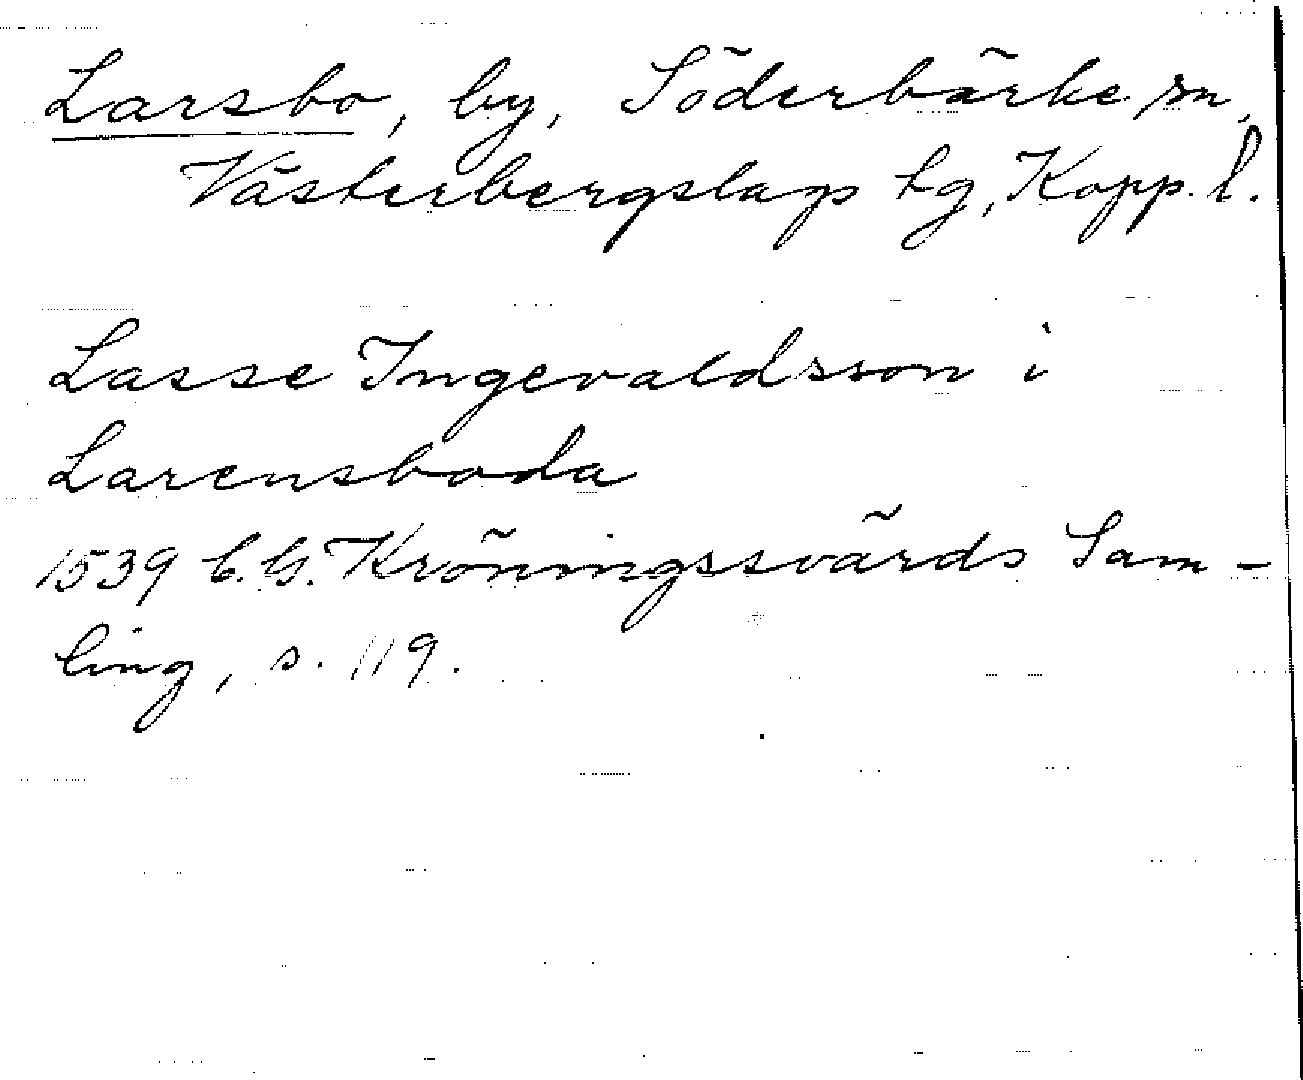 Larsbo, by, Söderbärke sn,
Västerbergslags tg, Kopp. l.
Lasse Ingevaldsson i
Larensboda
1539 C.G. Kröningssvärds Sam-
ling, s. 119.